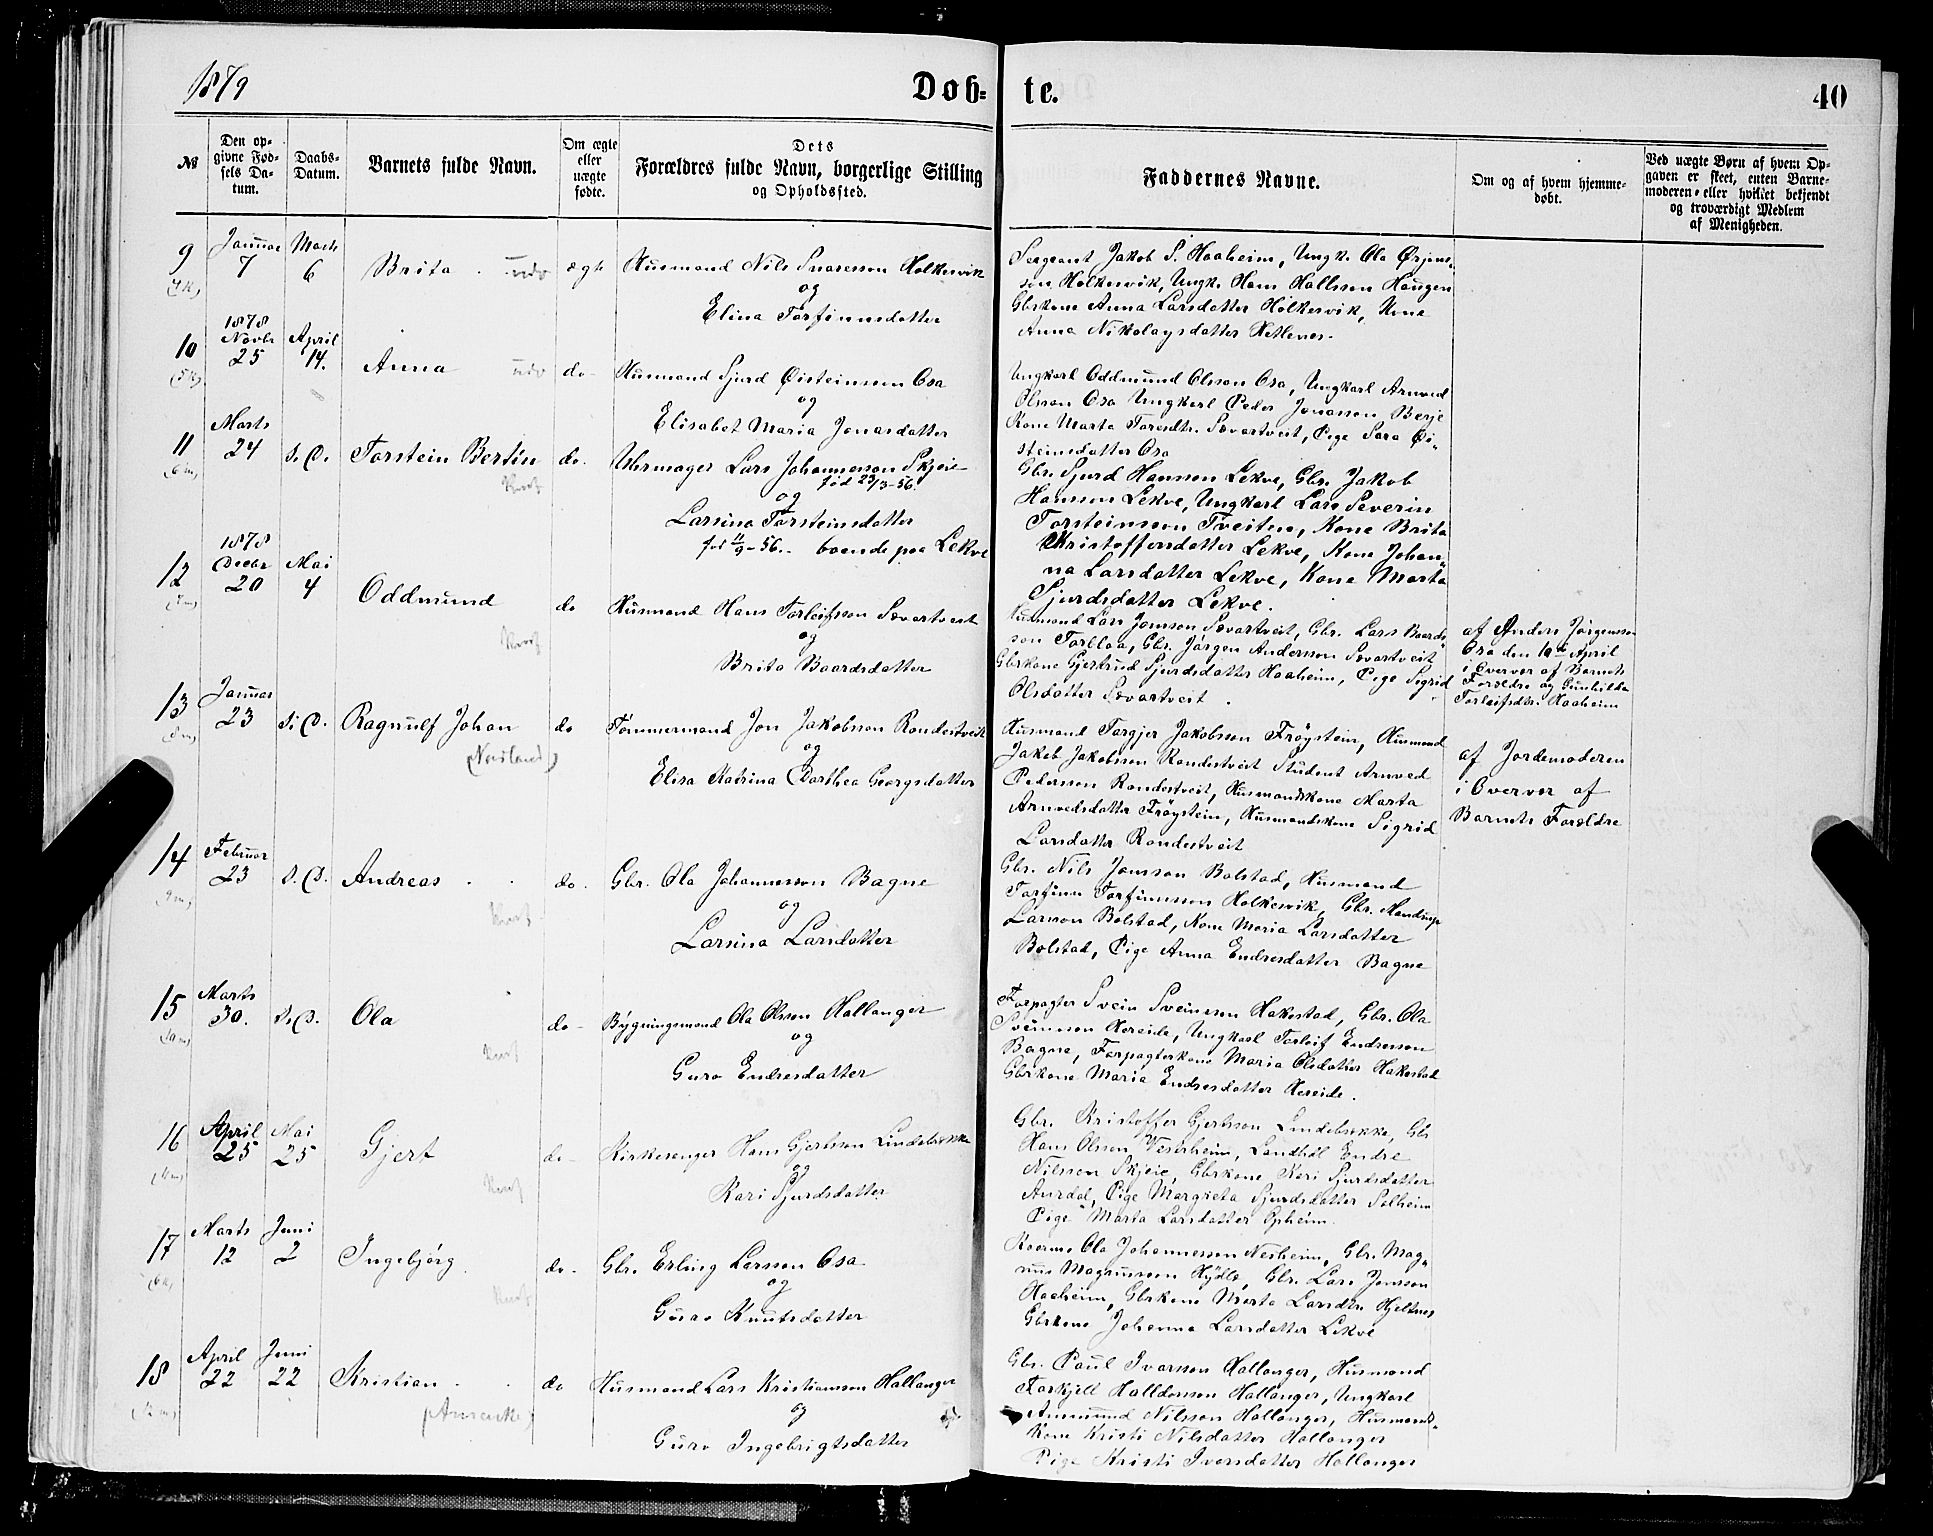 1879
Døb-
te.
40
№
Den op-
givne Fød-
sels Da-
tum.
Daabs-
Datum.
Barnets fulde Navn.
Om ægte
eller
uægte
fødte.
Dets
Forældres fulde Navn, borgerlige Stilling
og Opholdssted.
Faddernes Navne.
Om og af hvem hjemme-
døbt.
Ved uægte Børn af hvem Op-
gaven er skeet, enten Barne-
moderen, eller hvilket bekjendt
og troværdigt Medlem
af Menigheden.
9
(4k)
Januar
7
Marts
6
Brita
ægte
Husmand Nils Snaresson Holkesvik
og
Elina Torfinnsdatter
Sergeant Jakob S. Haaheim, Ungk. Ola Ørjens-
son Holkesvik, Ungk. Hans Hallsson Haugen
Gbrkone Anna Larsdatter Holkesvik, Kone
Anna Nikolaysdatter Hetlenes.
10
(5k)
1878
Novbr
25
April
14.
Anna
do
Husmand Sjurd Øisteinsson Osa
og
Elisabet Maria Jonasdatter
Ungkarl Oddmund Olsson Osa, Ungkarl Arnved
Olsson Osa Ungkarl Peder Jonasson Berje
Kone Marta Toresdtr. Sævartveit, Pige Sara Øi-
steinsdatter Osa
11
(6m)
Marts
24
s. D.
Torstein Bertin
do.
Uhrmager Lars Johannesson Skjeie
fød 23/3-56.
og
Larsina Torsteinsdatter
fød 11/9-56. boende paa Lekve
Gbr. Sjurd Hansson Lekve, Gbr. Jakob
Hansson Lekve, Ungkarl Lars Severin
Torsteinsson Tveiten, Kone Brita
Kristoffersdatter Lekve, Kone Johan-
na Larsdatter Lekve, Kone Marta
Sjurdsdatter Lekve.
12
(7m)
1878
Decbr
20
Mai
4
Oddmund
do
Husmand Hans Torleifsson Sævartveit
og
Brita Baardsdatter
Husmand Lars Jonsson Sævartveit, Gbr. Lars Baards-
son Torblaa, Gbr. Jørgen Andersson Sævartveit
Gbrkone Gjertrud Sjurdsdatter Haaheim, Pige Sigrid
Olsdatter Sævartveit.
af Anders Jørgensson
Osa den 10de April
i Overvær af Barnets
Forældre og Gunhilda
Torleifsdtr. Haaheim
13
(8m)
Januar
23
s. D.
Ragnulf Johan
(Nordland)
do
Tømmermand Jon Jakobsson Rondestveit
og
Elisa Katrina Dorthea Georgsdatter
Husmand Torgjer Jakobsson Frøystein, Husmand
Jakob Jakobsson Rondestveit Student Arnved
Pedersson Rondestveit, Husmandskone Marta
Arnvedsdatter Frøystein, Husmandskone Sigrid
Larsdatter Rondestveit
af Jordemoderen
i Overvær af
Barnets Forældre
14
(9m)
Februar
23
s. D.
Andreas
do.
Gbr. Ola Johannesson Bagne
og
Larsina Larsdatter
Gbr. Nils Jonsson Bolstad, Husmand
Torfinn Torfinnsson Holkesvik, Gbr. Mandrup
Larsson Bolstad, Kone Maria Larsdatter
Bolstad, Pige Anna Endresdatter Bagne
15
(10m)
Marts
30.
s. D.
Ola
do
Bygningsmand Ola Olsson Hallanger
og
Guro Endresdatter
Forpagter Svein Sveinsson Hakestad, Gbr. Ola
Sveinsson Hereide, Ungkarl Torleif Endresson
Bagne, Forpagterkone Maria Olsdatter Hakestad
Gbrkone Maria Endresdatter Hereide.
16
(11m)
April
25
Mai
25
Gjert
do
Kirkesanger Hans Gjertsson Lindebrekke
og
Kari Sjurdsdatter
Gbr. Kristoffer Gjertsson Lindebrekke, Gbr
Hans Olsson Vestrheim, Landhdl Endre
Nilsson Skjeie, Gbrkone Kari Sjurdsdatter
Aurdal, Pige Margreta Sjurdsdatter Solheim
Pige Marta Larsdatter Opheim.
17
(6k)
Marts
12
Juni
2
Ingebjørg
do
Gbr. Erling Larsson Osa
og
Guro Knutsdatter
Ola Johannesson Nesheim, Gbr. Mag-
nus Magnusson Hydle, Gbr. Lars Jonsson
Haaheim, Gbrkone Marta Larsdtr. Hjeltnes
Gbrkone Johanna Larsdatter Lekve
18
(12m)
April
22
Juni
22
Kristian
(Amerika)
do
Husmand Lars Kristiansson Hallanger
og
Guro Ingebrigtsdatter
Gbr. Paul Ivarsson Hallanger, Husmand
Torkjell Halldorsson Hallanger, Ungkarl
Ammund Nilsson Hallanger, Husmands-
Kone Kristi Nilsdatter Hallanger
Pige Kristi Iversdatter Hallanger